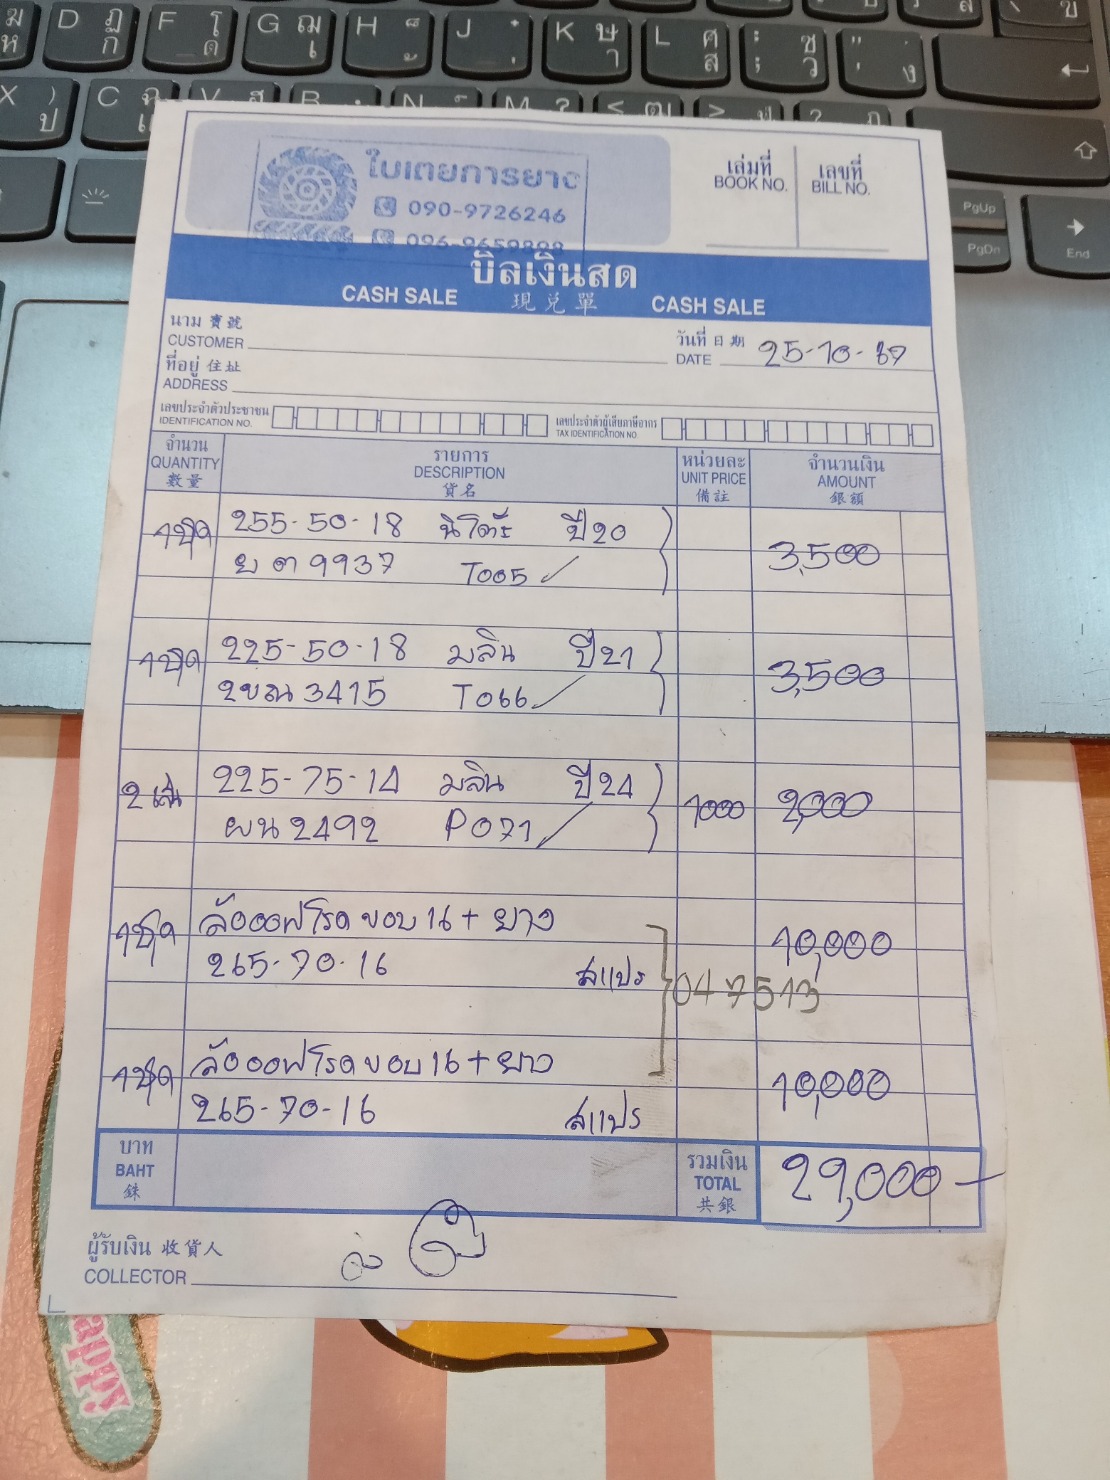 ใบเตยการยาง
090-9726246
096-9659898
เล่มที่
BOOK NO.
เลขที่
BILL NO.
บิลเงินสด
CASH SALE 現兌單 CASH SALE
นาม 寶號
CUSTOMER
วันที่ 日期
DATE 25-10-
ที่อยู่ 住址
ADDRESS
เลขประจำตัวประชาชน
IDENTIFICATION NO.
เลขประจำตัวผู้เสียภาษีอากร
TAX IDENTIFICATION NO.
จำนวน
QUANTITY
數量
รายการ
DESCRIPTION
貨名
หน่วยละ
UNIT PRICE
備註
จำนวนเงิน
AMOUNT
銀額
1ชุด 255-50-18 นิโตะ ปี20 3,500
ยต 9937 T005
1ชุด 225-50-18 มลิน ปี21 3,500
2ขณ 3415 T066
2 เส้น 225-75-14 มลิน ปี24 1000 2,000
ผน 2492 P071
1ชุด ล้อออฟโรด ขอบ 16 + ยาง 10,000
265-70-16 สแปร 047513
1ชุด ล้อออฟโรด ขอบ 16 + ยาง 10,000
265-70-16 สแปร
บาท
BAHT
銖
รวมเงิน
TOTAL
共銀
29,000-
ผู้รับเงิน 收貨人
COLLECTOR
appy
D ฏ ก
F โ ด
G ฌ เ
H
J
K ษ า
L ศ ส
; ซ ว
" ง
X ) ป
C ฉ แ
V ฮ
B
N
M ?
< ฒ
>
? ฦ
PgUp
PgDn
End